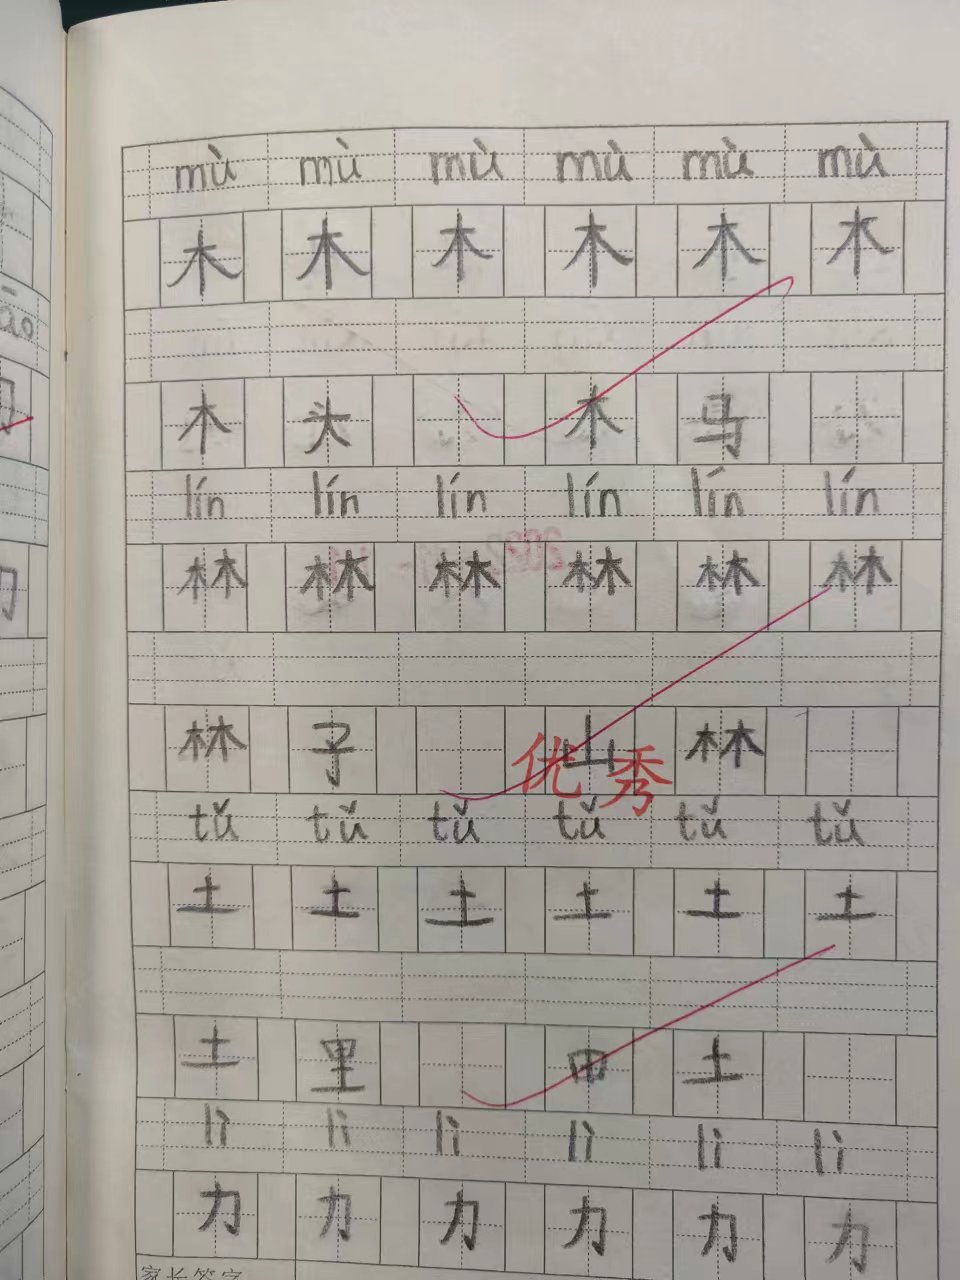 mù mù mù mù mù mù
木 木 木 木 木 木
木 头 木 马
lín lín lín lín lín lín
林 林 林 林 林 林
林 子 山 林
优秀
tǔ tǔ tǔ tǔ tǔ tǔ
土 土 土 土 土 土
土 里 田 土
lì lì lì lì lì lì
力 力 力 力 力 力
家长签字